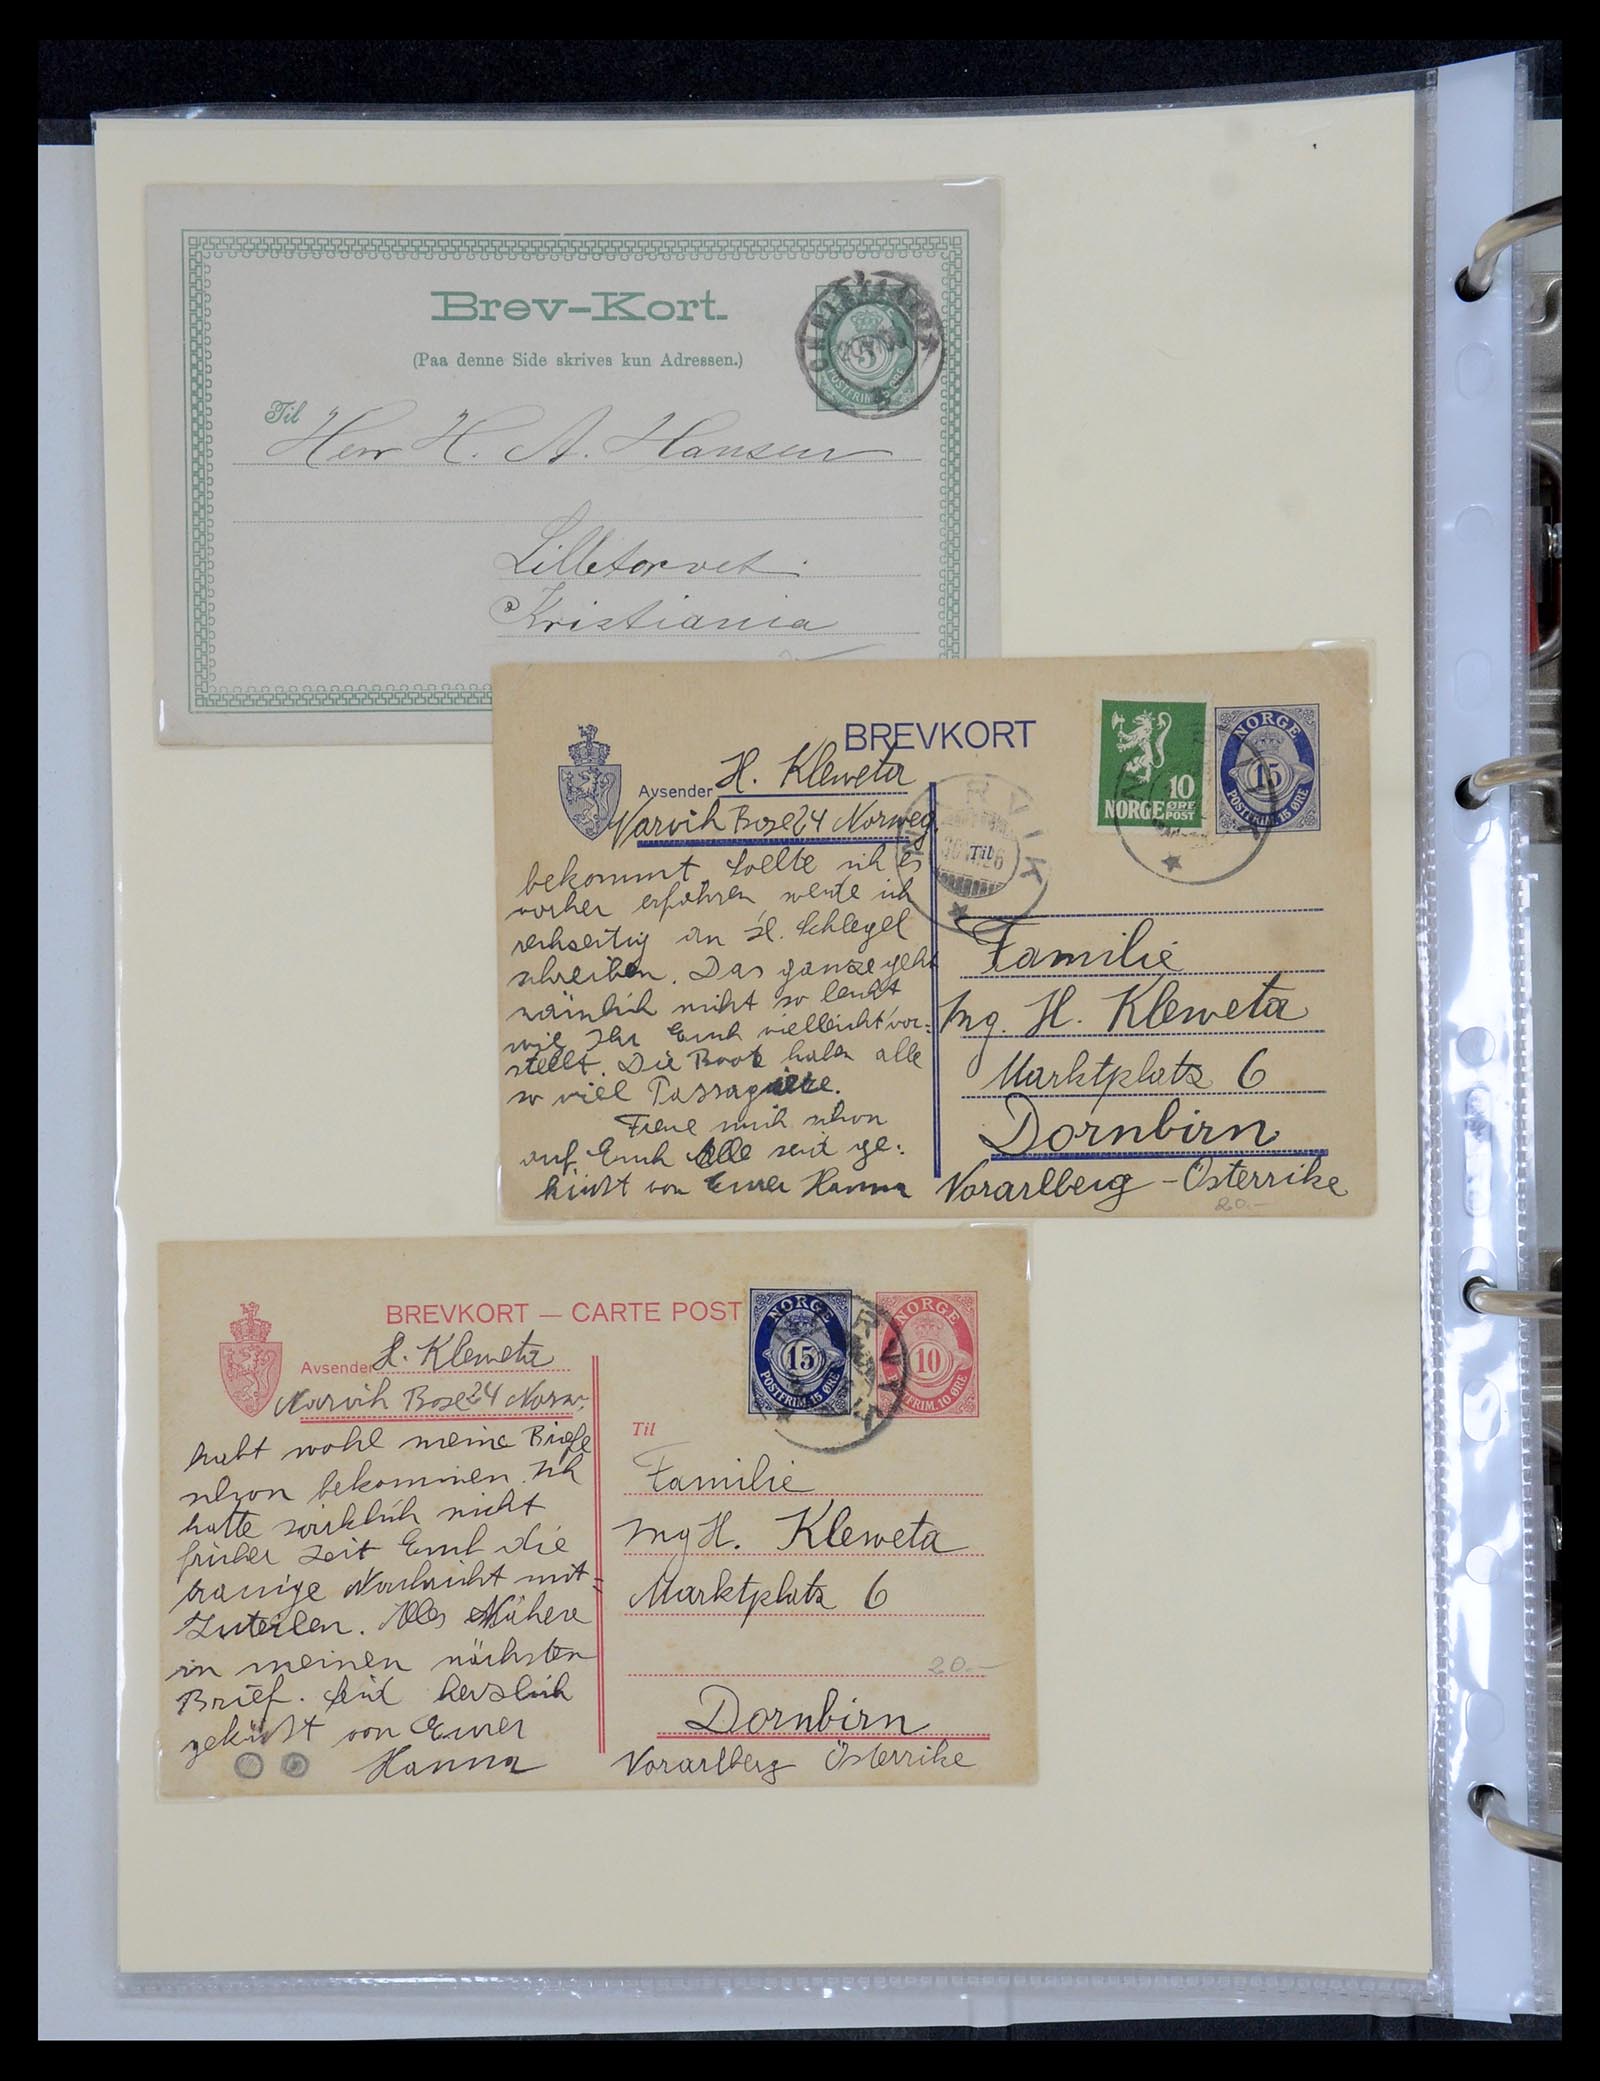 Brev-Kort.
(Paa denne Side skrives kun Adressen.)
5
POSTFRIM. 5 ØRE
Til
Herr H. A. Hansen
Lilletorvet
Kristiania
BREVKORT
10
NORGE ØRE POST
NORGE
15
POSTFRIM. 15 ØRE
Avsender H. Kleweta
Narvik Box 24 Norweg
NARVIK
Til
bekommt Sollte ich es
vorher erfahren werde ich
rechzeitig an Hl. Schlegel
schreiben. Das ganze geht
nämlich nicht so leicht
wie Ihr Euch vielleicht vor-
stellt. Die Boote haben alle
so viel Passagiere.
Freue mich schon
auf Euch Alle seid ge-
küsst von Eurer Hanna
Familie
Ing. H. Kleweta
Marktplatz 6
Dornbirn
Vorarlberg - Österrike
20.-
BREVKORT — CARTE POST
NORGE
15
POSTFRIM. 15 ØRE
NORGE
10
POSTFRIM. 10 ØRE
Avsender H. Kleweta
Narvik Box 24 Norw.
habt wohl meine Briefe
schon bekommen. Ich
hatte wirklich nicht
früher Zeit Euch die
traurige Nachricht mit-
zuteilen. Alles Nähere
in meinen nächsten
Brief. Seid herzlich
geküsst von Eurer
Hanna
Til
Familie
Ing H. Kleweta
Marktplatz 6
20.-
Dornbirn
Vorarlberg Österrike